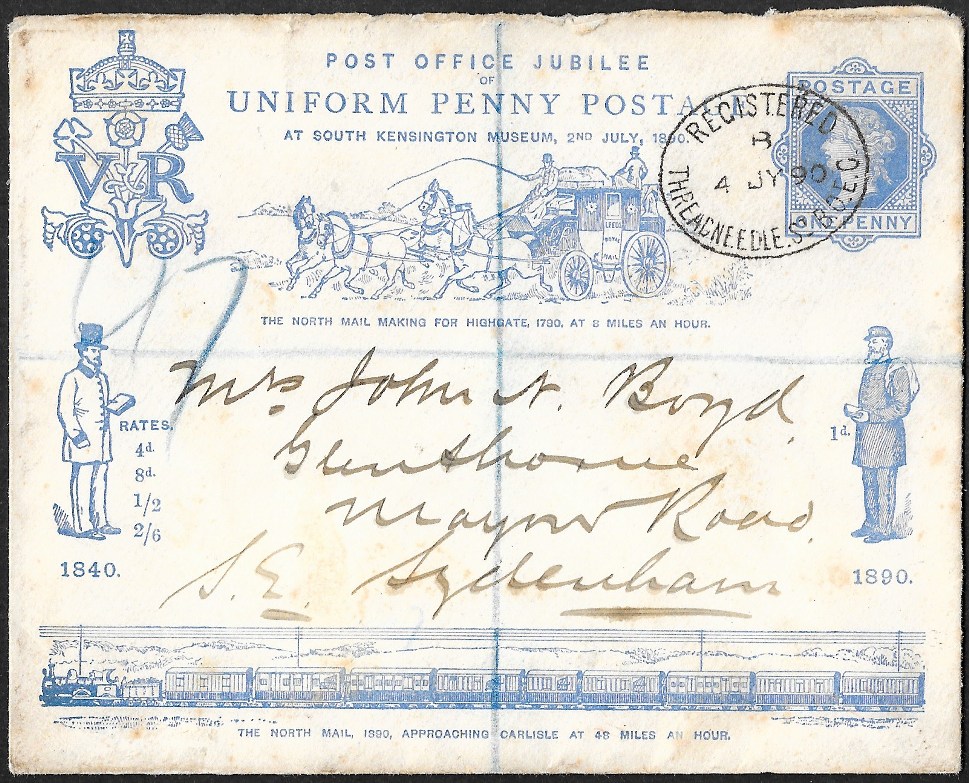 POST OFFICE JUBILEE
OF
UNIFORM PENNY POSTA
AT SOUTH KENSINGTON MUSEUM, 2ND JULY, 1890.
VR
POSTAGE
ONE PENNY
REGISTERED
B
4 JY 90
THREADNEEDLE. ST B.O. E.C
LEEDS
ROYAL
MAIL
THE NORTH MAIL MAKING FOR HIGHGATE, 1790, AT 8 MILES AN HOUR.
Mrs John N. Boyd,
Glenthorne
Mayow Road,
S.E. Sydenham
RATES.
4d.
8d.
1/2
2/6
1840.
1d.
1890.
THE NORTH MAIL, 1890, APPROACHING CARLISLE AT 48 MILES AN HOUR.